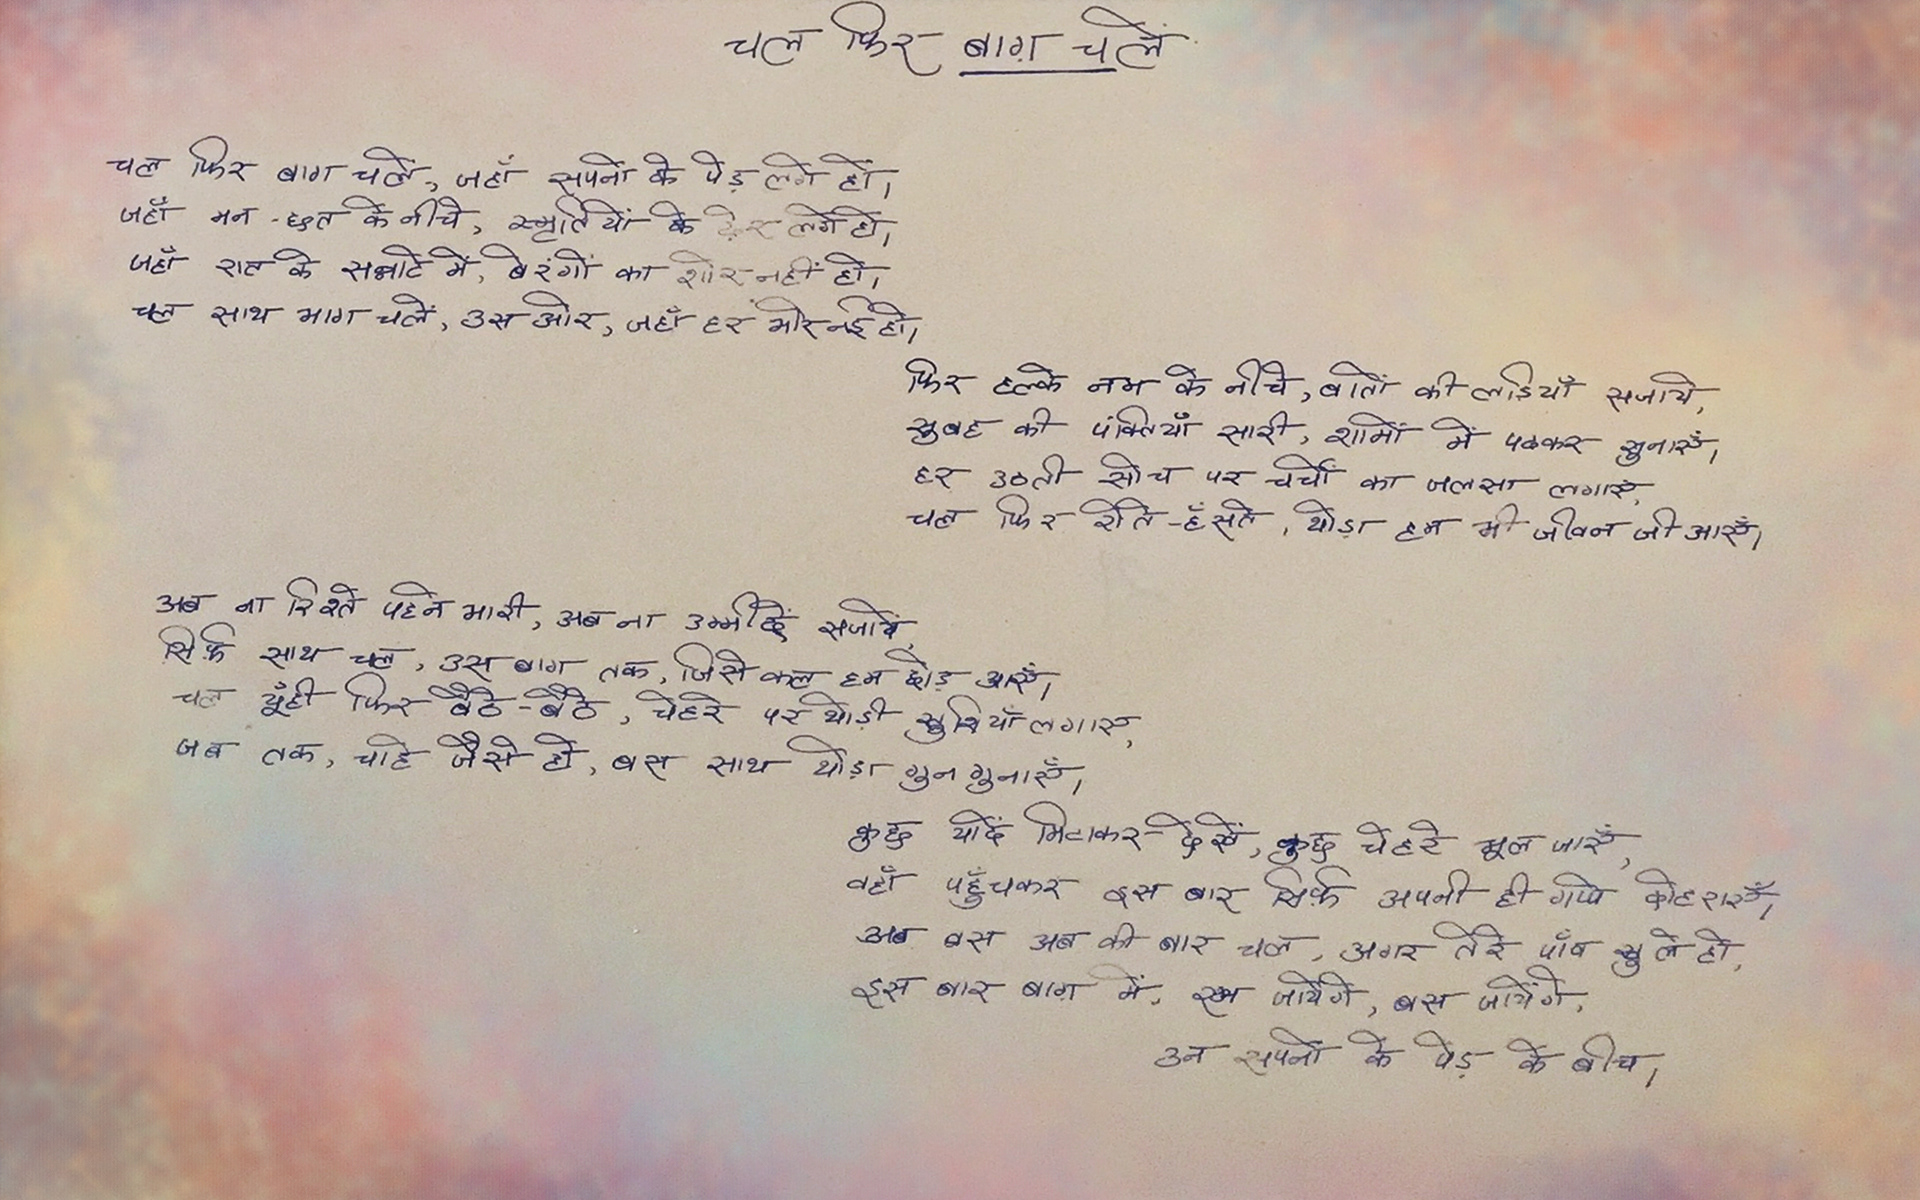 चल फिर बाग़ चलें
चल फिर बाग चलें, जहाँ सपनों के पेड़ लगे हों,
जहाँ मन-छत के नीचे, स्मृतियों के ढ़ेर लगे हो,
जहाँ रात के सन्नाटे में, बेरंगों का शोर नहीं हो,
चल साथ भाग चलें, उस ओर, जहाँ हर भोर नई हो,
फिर हल्के नभ के नीचे, बातों की लडियाँ सजाये,
सुबह की पंक्तियाँ सारी, शामों में पढकर सुनाएँ,
हर उठती सोच पर चर्चों का जलसा लगाएँ,
चल फिर रोते-हँसते, थोड़ा हम भी जीवन जी आएँ,
अब ना रिश्ते पहने भारी, अब ना उम्मीदें सजायें,
सिर्फ़ साथ चल, उस बाग तक, जिसे कल हम छोड़ आएँ,
चल यूँही फिर बैठे-बैठे, चेहरे पर थोडी खुशियाँ लगाए,
जब तक, चाहे जैसे हो, बस साथ थोड़ा गुनगुनाएँ,
कुछ यादें मिटाकर देखें, कुछ चेहरे भूल जाएँ,
वहाँ पहुँचकर इस बार सिर्फ़ अपनी ही गप्पे दोहराएँ,
अब बस अब की बार चल, अगर तेरे पाँव खुले हो,
इस बार बाग़ में, रम जायेंगे, बस जायेंगे,
उन सपनों के पेड़ के बीच,